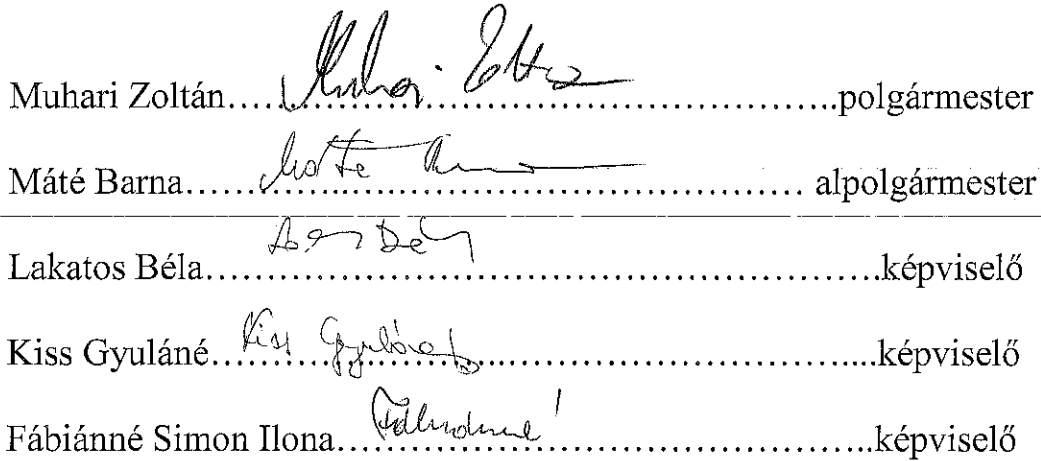 Muhari Zoltán....Muhari Zoltán....polgármester
Máté Barna....Máté....alpolgármester
Lakatos Béla....képviselő
Kiss Gyuláné....Kiss Gyuláné....képviselő
Fábiánné Simon Ilona....képviselő